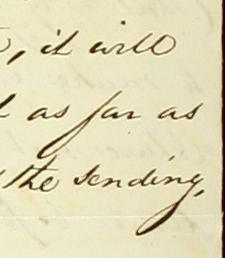 , it will
as far as
the sending,